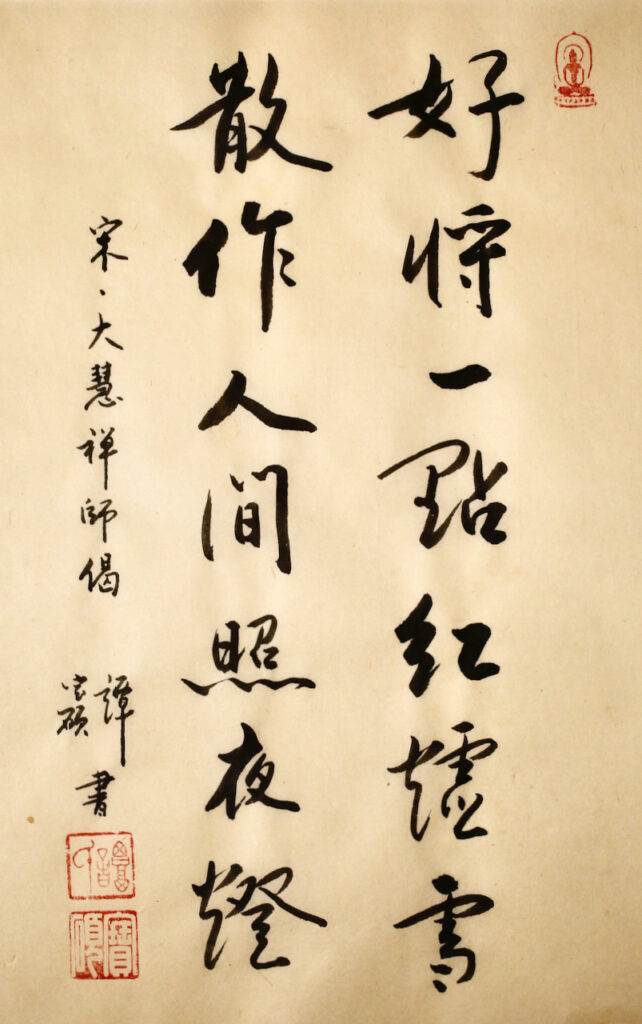 好将一點紅爐雪
散作人間照夜燈
宋、大慧禅師偈
譚宝碩書
寶碩